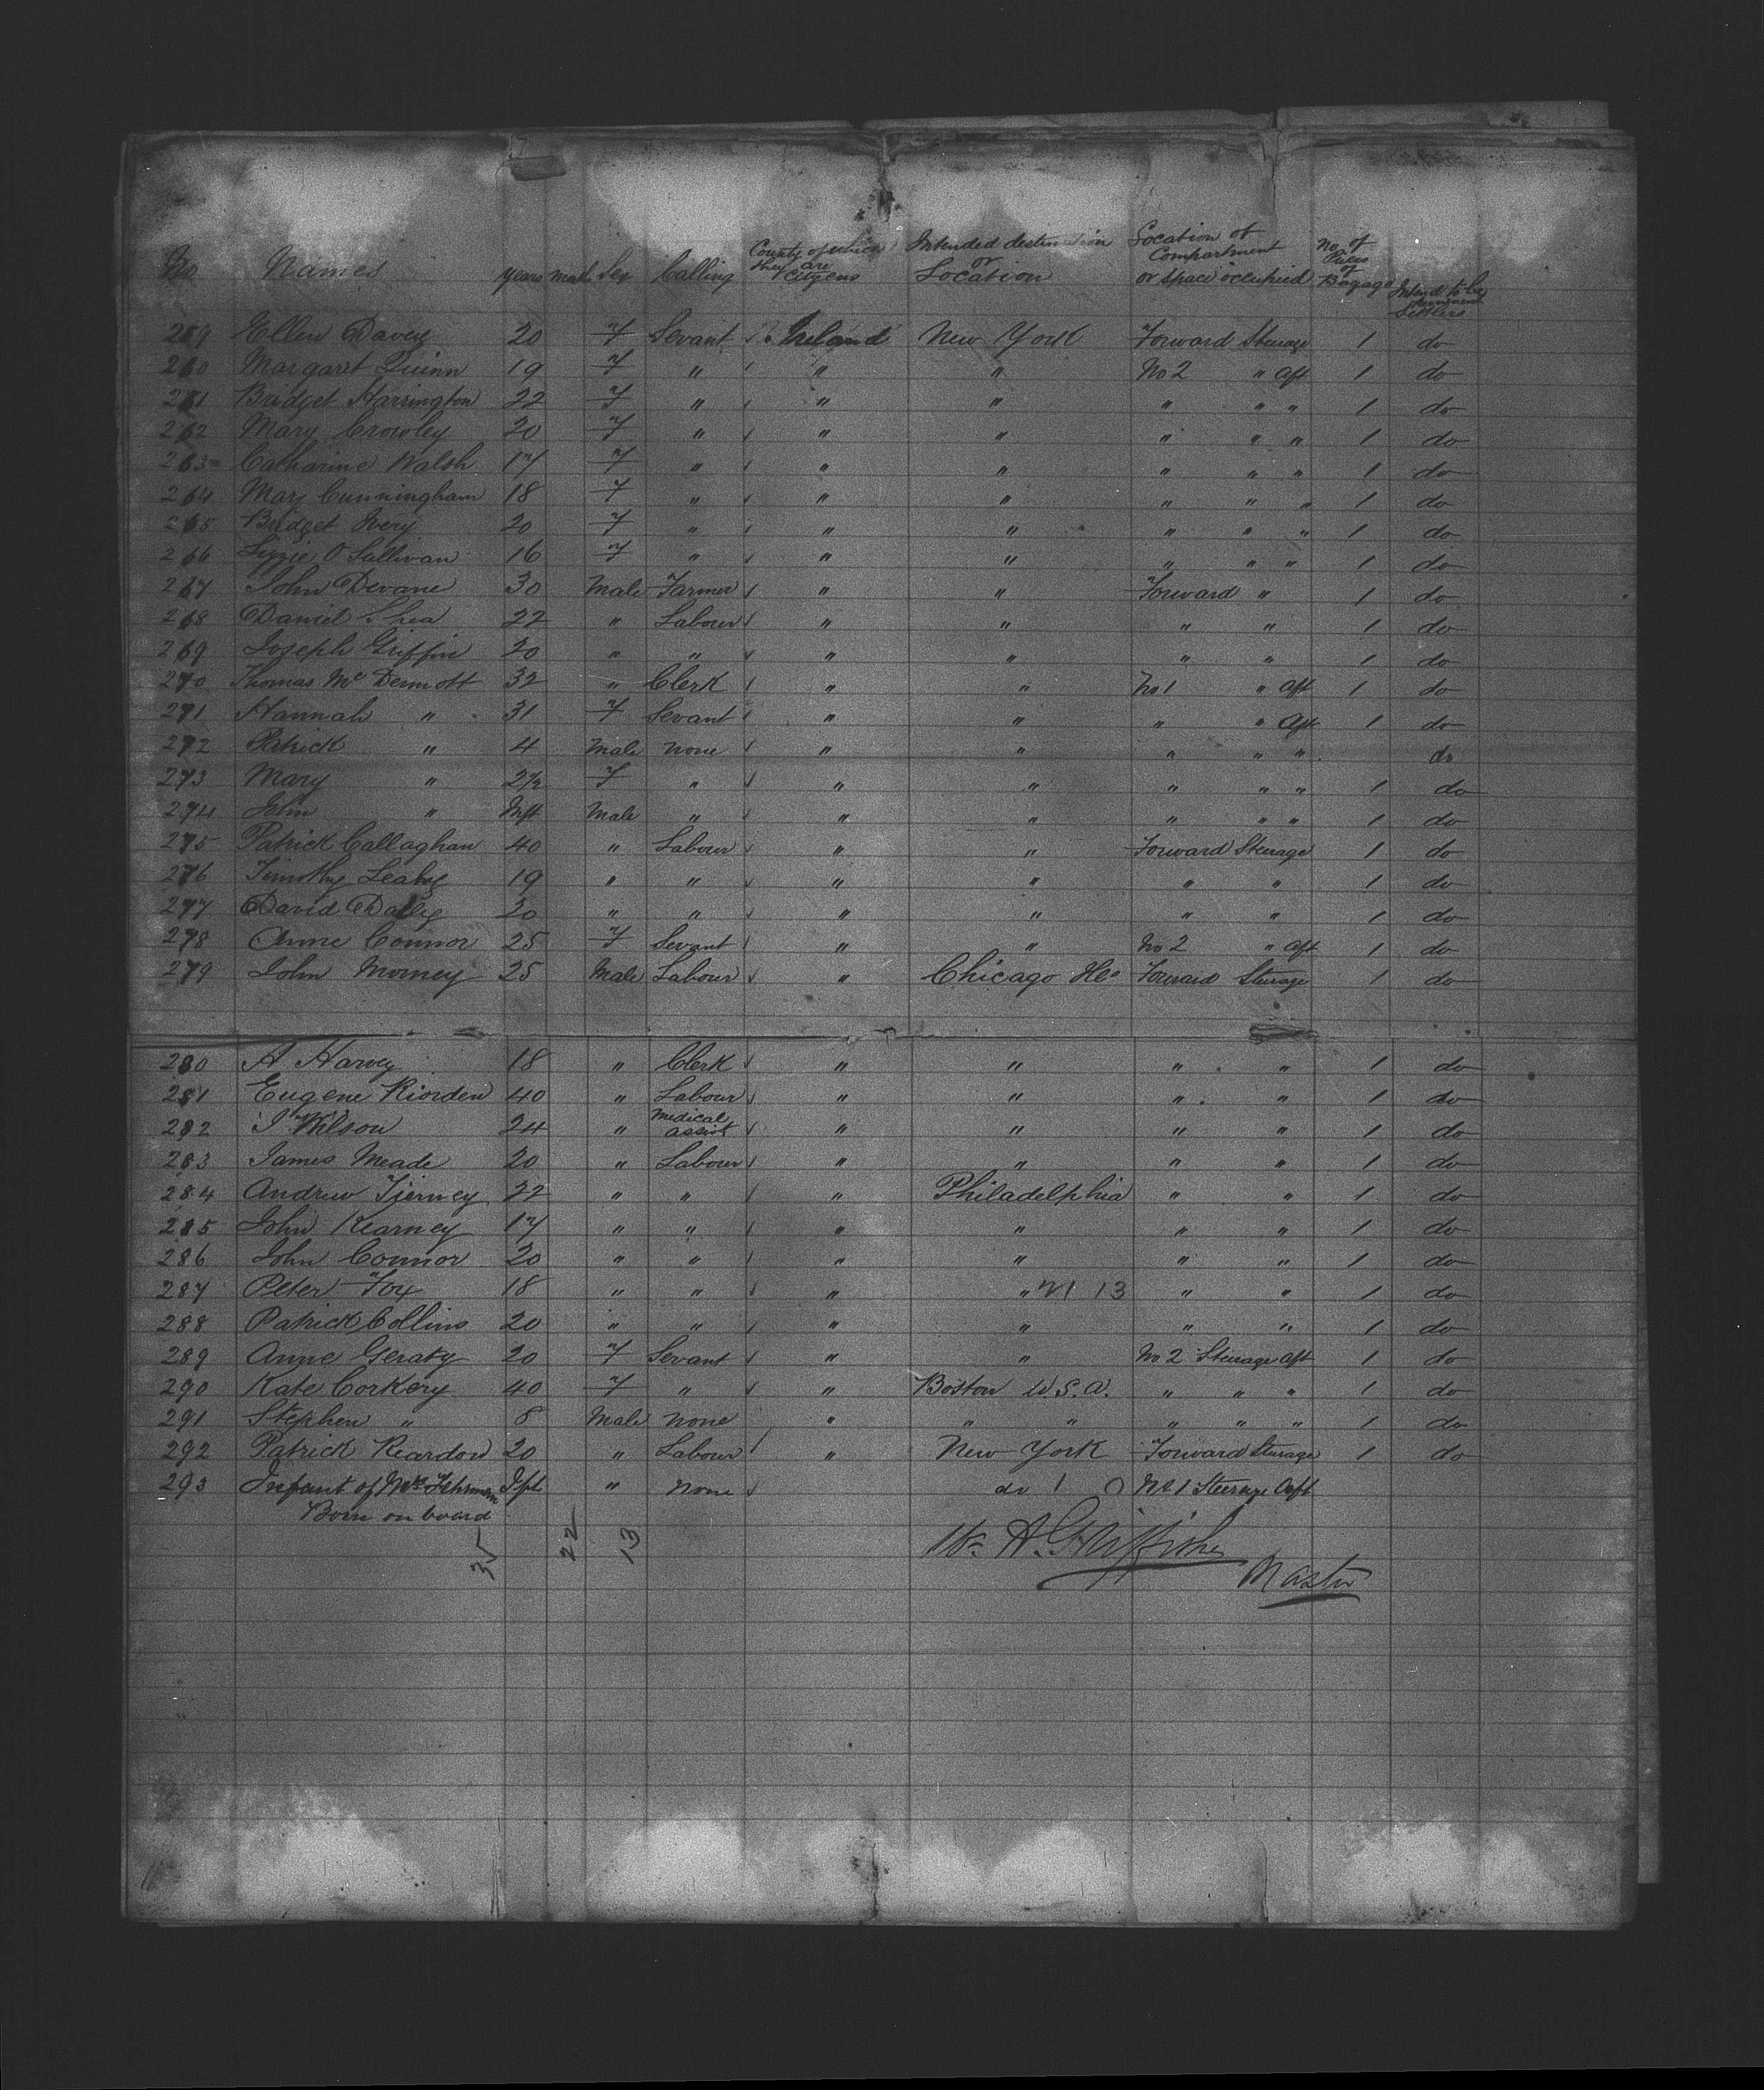 No Names Years Mnth Sex Calling County of which they are Citizens Intended destination or Location Location of Compartment or space occupied No of Pieces of Bagage Intend to be permanent Settlers
259 Ellen Davey 20 F Servant Ireland New York Forward Steurage 1 do
260 Margaret Quinn 19 F " " " No 2 " aft 1 do
261 Bridget Harrington 22 F " " " " " " 1 do
262 Mary Crowley 20 F " " " " " " 1 do
263 Catharine Walsh 17 F " " " " " " 1 do
264 Mary Cunningham 18 F " " " " " " 1 do
265 Bridget Ivery 20 F " " " " " " 1 do
266 Lizzie O Sullivan 16 F " " " " " " 1 do
267 John Devane 30 Male Farmer " " Forward " 1 do
268 Daniel Shea 22 " Labour " " " " 1 do
269 Joseph Griffin 20 " " " " " " 1 do
270 Thomas Mc Dermott 32 " Clerk " " No 1 " aft 1 do
271 Hannah " 31 F Servant " " " " aft 1 do
272 Patrick " 4 Male none " " " " " do
273 Mary " 2½ F " " " " " " 1 do
274 John " Inft Male " " " " " " 1 do
275 Patrick Callaghan 40 " Labour " " Forward Steurage 1 do
276 Timothy Leahy 19 " " " " " " 1 do
277 David Dally 20 " " " " " " 1 do
278 Anne Connor 25 F Servant " " No 2 " aft 1 do
279 John Morney 25 Male Labour " Chicago Ills Forward Steurage 1 do
280 A Harvey 18 " Clerk " " " " 1 do
281 Eugene Riorden 40 " Labour " " " " 1 do
282 J Wilson 24 " Medical assist " " " " 1 do
283 James Meade 20 " Labour " " " " 1 do
284 Andrew Tierney 22 " " " Philadelphia " " 1 do
285 John Kearney 17 " " " " " " 1 do
286 John Connor 20 " " " " " " 1 do
287 Peter Fox 18 " " " " 21 13 " " 1 do
288 Patrick Collins 20 " " " " " " 1 do
289 Anne Geraty 20 F Servant " " No 2 Steurage aft 1 do
290 Kate Corkery 40 F " " Boston U.S.A. " " " 1 do
291 Stephen " 8 Male none " " " " " " 1 do
292 Patrick Reardon 20 " Labour " New York Forward Steurage 1 do
293 Infant of Mrs Inft " none do 1 0 No 1 Steerage Aft
Born on board
35 22 13
Master